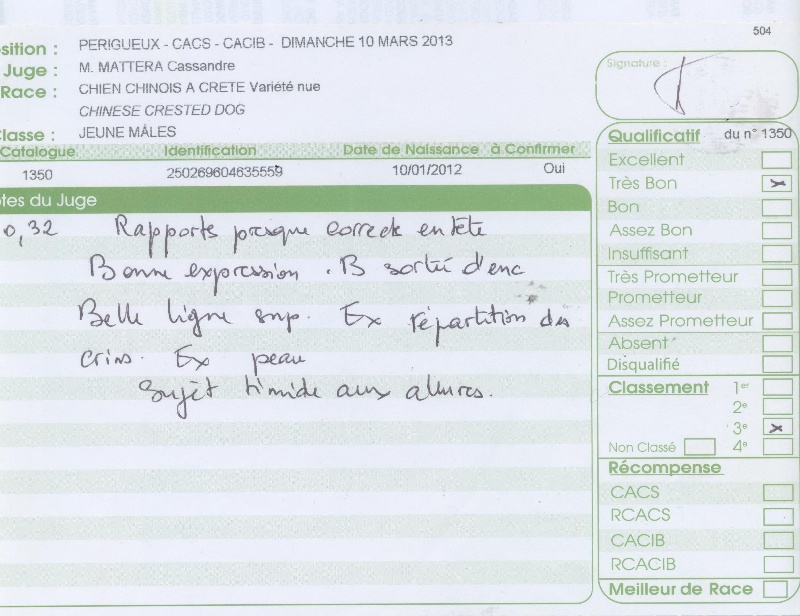 504
sition : PERIGUEUX - CACS - CACIB - DIMANCHE 10 MARS 2013
Juge : M. MATTERA Cassandre
Race : CHIEN CHINOIS A CRETE Variété nue
CHINESE CRESTED DOG
lasse : JEUNE MÂLES
Signature :
Catalogue Identification Date de Naissance à Confirmer
1350 250269604635559 10/01/2012 Oui
tes du Juge
0,32 Rapports presque corrects en tête
Bonne expression . B sortie d'enc
Belle ligne sup. Ex répartition des
crins. Ex peau
Sujet timide aux allures.
Qualificatif du n° 1350
Excellent
Très Bon x
Bon
Assez Bon
Insuffisant
Très Prometteur
Prometteur
Assez Prometteur
Absent
Disqualifié
Classement 1er
2e
3e x
Non Classé 4e
Récompense
CACS
RCACS
CACIB
RCACIB
Meilleur de Race